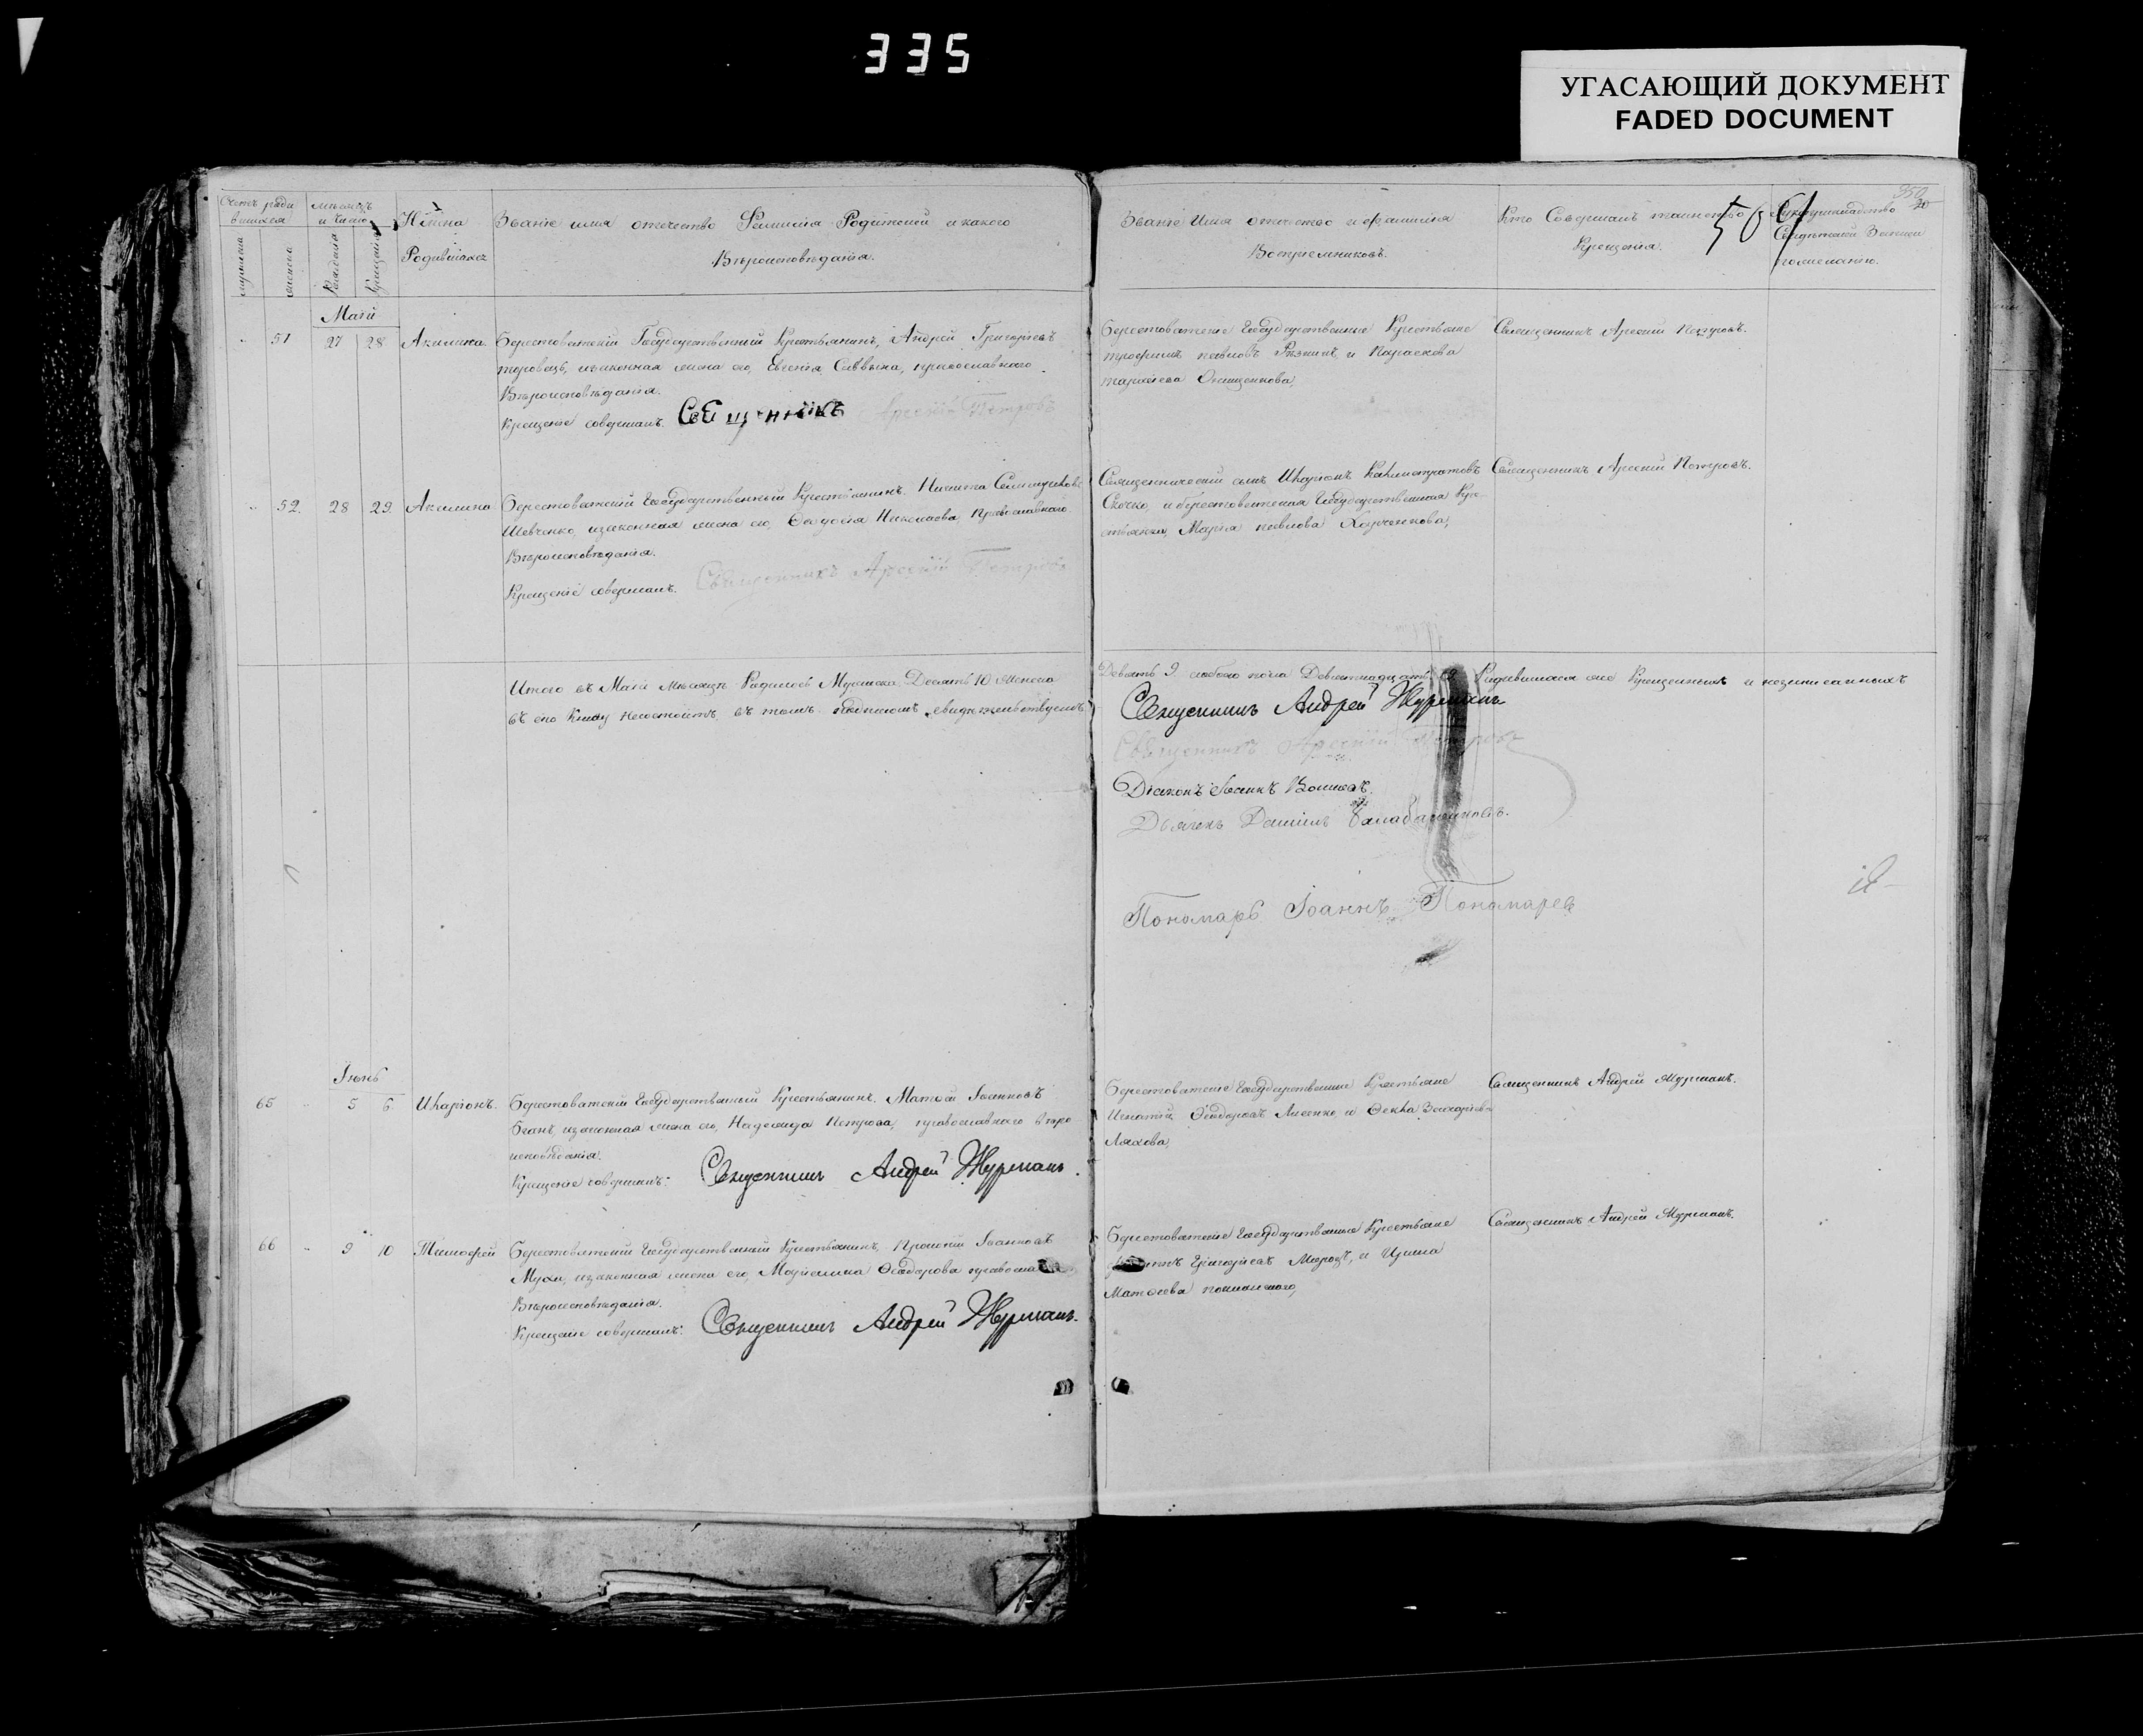 335
УГАСАЮЩИЙ ДОКУМЕНТ
FADED DOCUMENT
Счетъ роди
вшихся
мужска
женска
Мѣсяцъ
и число
Рожденія
Крещенія
Имяна
Родившихся
Званіе имя отечество Фамилія Родителей и какого
Вѣроисповѣданія.
Званіе Имя отчество и фамилія
Воспріемниковъ.
Кто Совершалъ таинство
Крещенія.
Рукоприкладство
Свидѣтелей Записи
по желанію.
350
Маій
51
27
28
Акилина.
Берестоватскій Государственный Крестьянинъ, Андрей Григоріевъ
законная жена его, Евгенія Саввина, православнаго
Вѣроисповѣданія.
Крещеніе совершалъ. Священникъ Арсеній Петровъ
Берестоватскіе Государственные Крестьяне
трофимъ павловъ Рѣзникъ и Параскева
Онищенкова,
Священникъ Арсеній Петровъ.
52.
28
29.
Акилина.
Берестоватскій Государственный Крестьянинъ. Никита
Шевченко, изаконная жена его, Ѳеодосія Николаева, Православнаго
Вѣроисповѣданія.
Крещеніе совершалъ. Священникъ Арсеній Петровъ
Священническій сынъ Иларіонъ Калистратовъ
Скочко, и берестоватская Государственная Кре-
стьянка Марія павлова Харченкова,
Священникъ Арсеній Петровъ.
Итого въ Маіи Мѣсяцѣ Родилось Мужеска Десять 10 Женска
въ сію Книгу Несостоитъ въ томъ подписомъ свидѣтельствуемъ
Девять 9. обоего пола Девятнадцать Родившихся не Крещенныхъ и незаписанныхъ
Священникъ Андрей Журманъ
Священникъ Арсеній Петровъ
Діаконъ Іоаннъ
Дьячекъ Даніилъ
Пономарь Іоаннъ Пономаревъ
Іюнь
65
5
6.
Иларіонъ.
Берестоватскій Государственный Крестьянинъ, Матѳей Іоанновъ
изаконная жена его, Надежда Петрова, православнаго вѣро
исповѣданія.
Крещеніе совершалъ: Священникъ Андрей Журманъ.
Берестоватскіе Государственные Крестьяне
Игнатій Ѳеодоровъ Лисенко, и Ѳекла Захаріева
Ляхова,
Священникъ Андрей Журманъ.
66
9
10
Тимоѳей
Берестоватскій Государственный Крестьянинъ, Прокопій Іоанновъ
Муха, изаконная жена его, Ѳеодорова
Вѣроисповѣданія.
Крещеніе совершалъ: Священникъ Андрей Журманъ.
Берестоватскіе Государственные Крестьяне
Григоріевъ Морозъ, и Ирина
Матѳеева
Священникъ Андрей Журманъ.